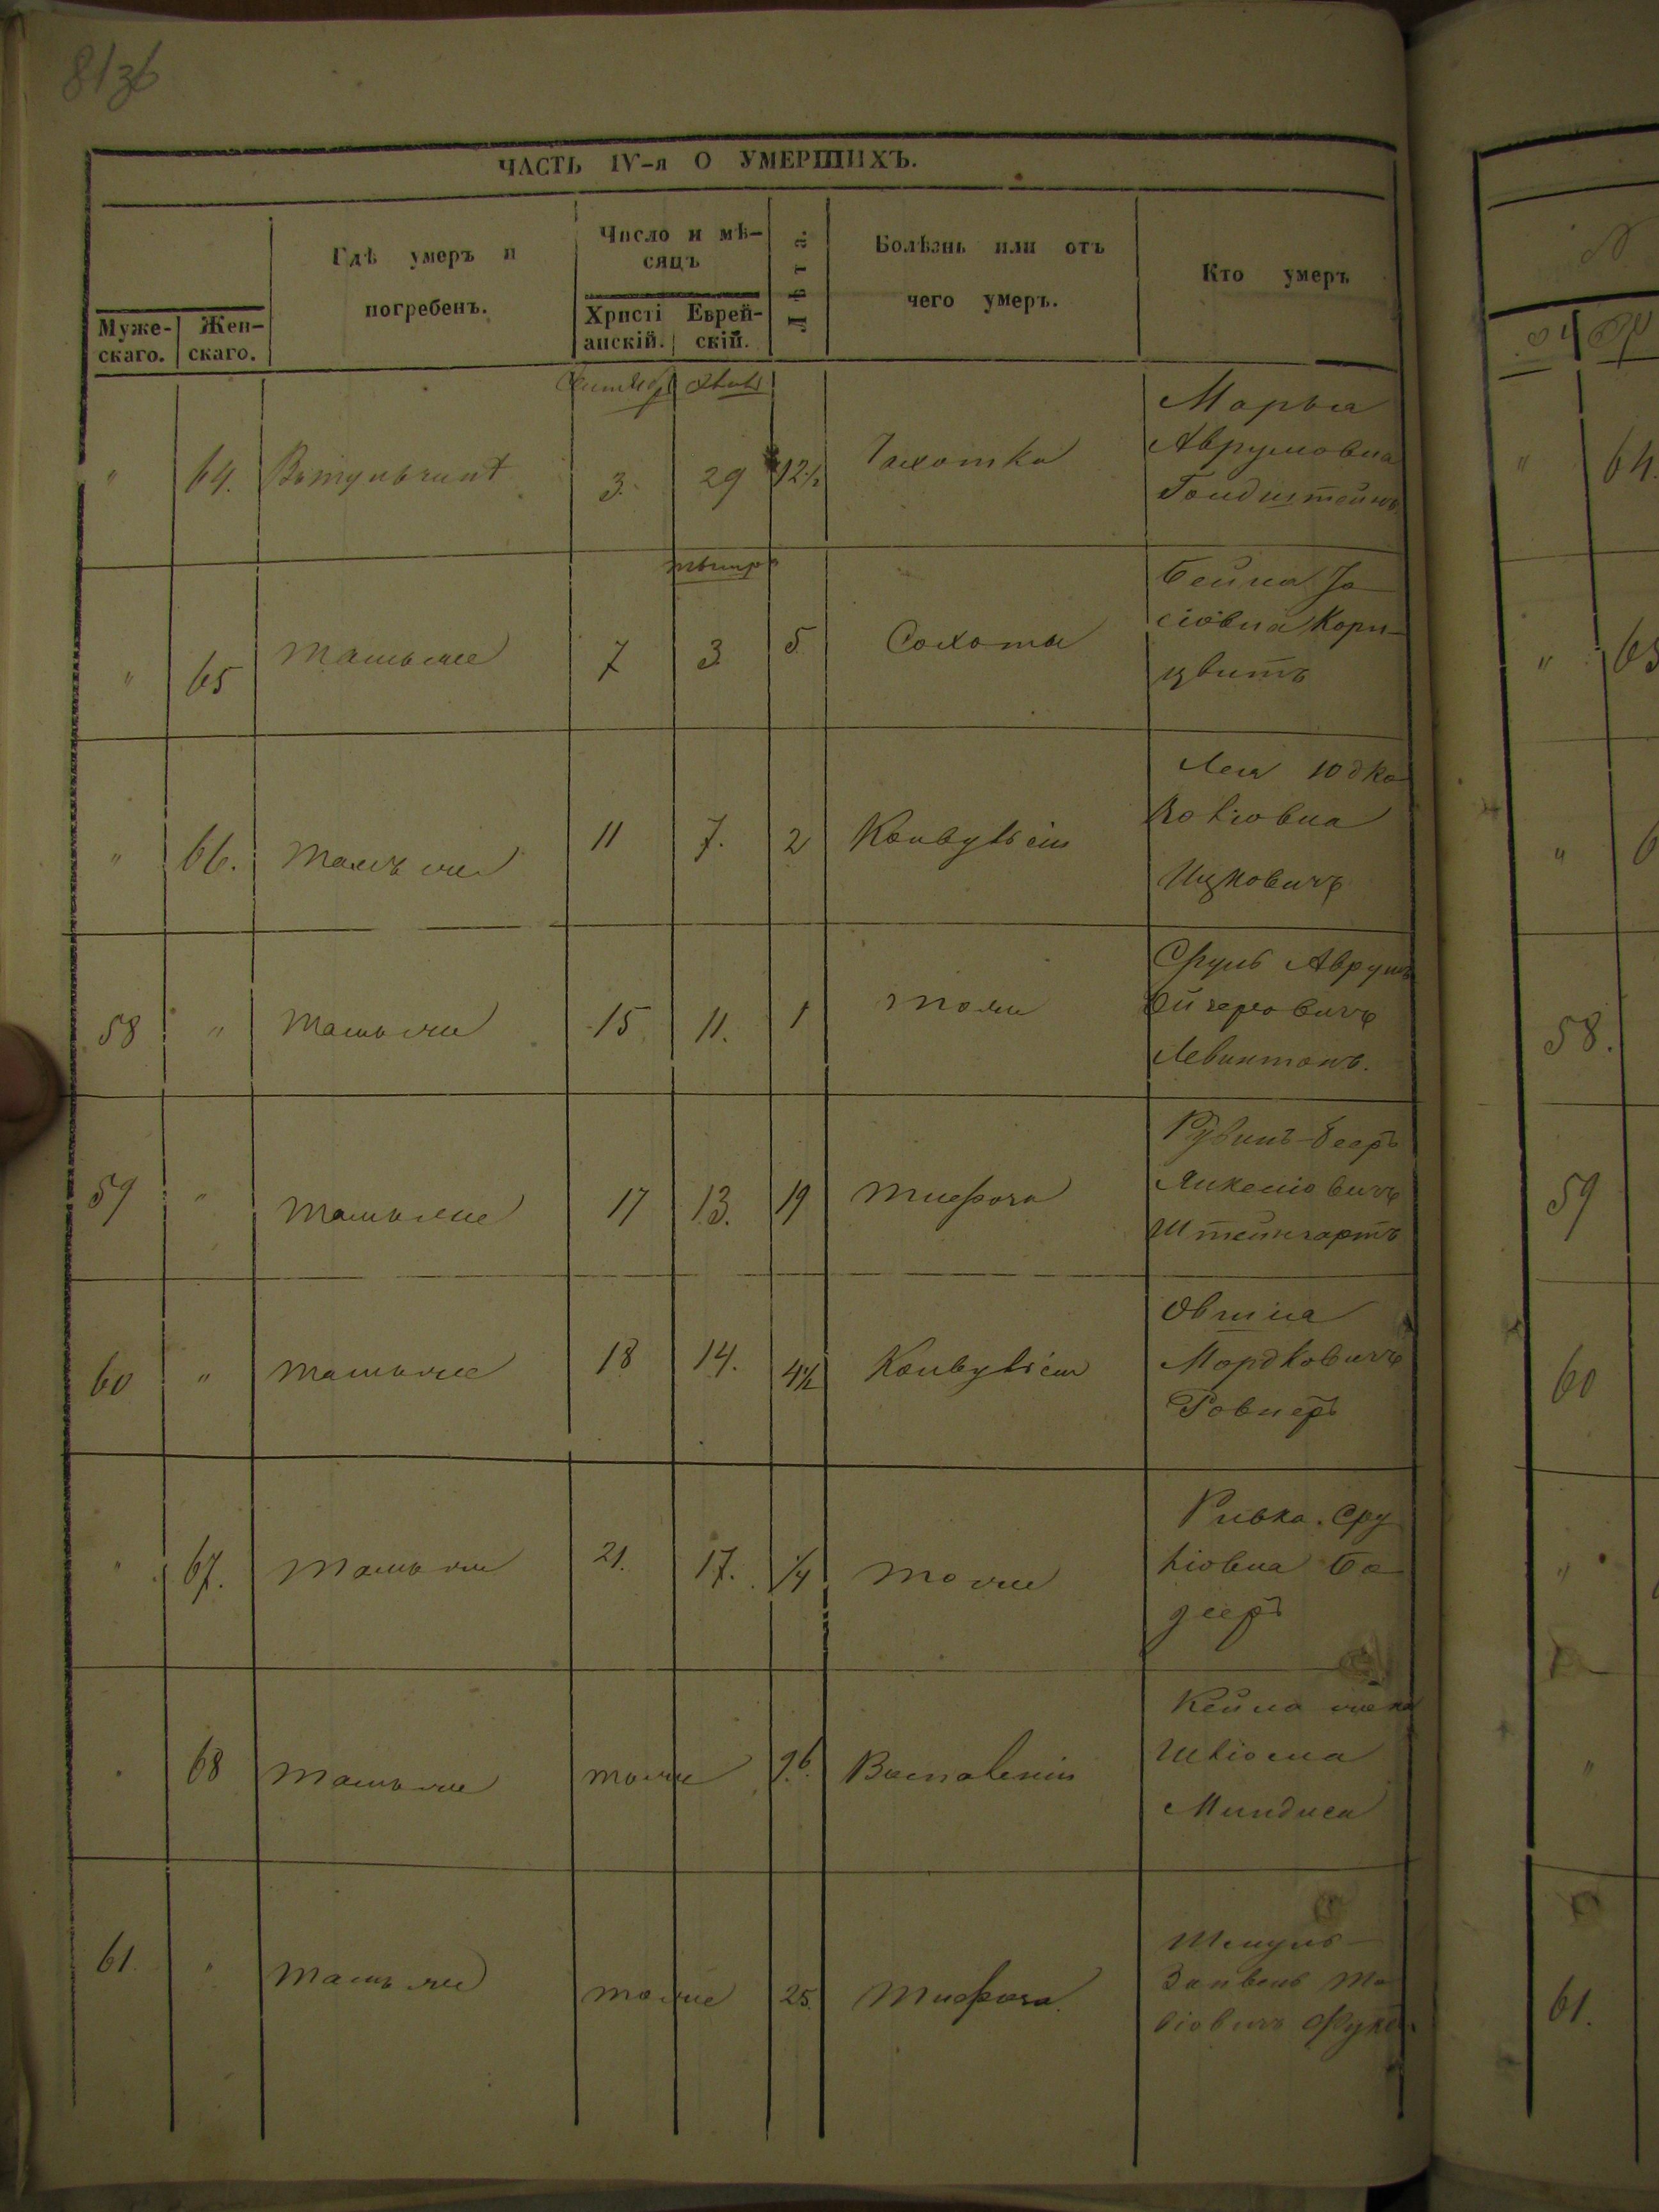 81зб
ЧАСТЬ IV-я О УМЕРШИХЪ.
Муже-
скаго.
Жен-
скаго.
Гдѣ умеръ и
погребенъ.
Число и мѣ-
сяцъ
Христі
анскій.
Еврей-
скій.
Лѣта.
Болѣзнь или отъ
чего умеръ.
Кто умеръ
" 64. 3. 29 12½ Чахотка
Марья
Аврумовна
Голдштейнъ
" 65 тамъ же 7 3 5 Сохоты
Бейла Іо
сіовна Корн-
цвитъ
" 66. тамъ же 11 7. 2 Конвульсіи
Лея Юдко
Ицковичъ
58 " тамъ же 15 11. 1 тоже
Сруль Аврумъ
Левинтонъ.
59 " тамъ же 17 13. 19 тифоза
Рувинъ-Бееръ
Янкеліовичъ
Штейнгартъ
60 " тамъ же 18 14. 4½ Конвульсіи
Овшіа
Мордковичъ
Ровнеръ
" 67. тамъ же 21. 17. ¼ тоже
Ривка Сру
ліовна Ба
зееръ
" 68 тамъ же тоже 26. Воспаленіи
Кейла жена
Шліома
Миндиса
61. " тамъ же тоже 25. тифоза.
Шмуль-
Занвель
58.
59
60
61.